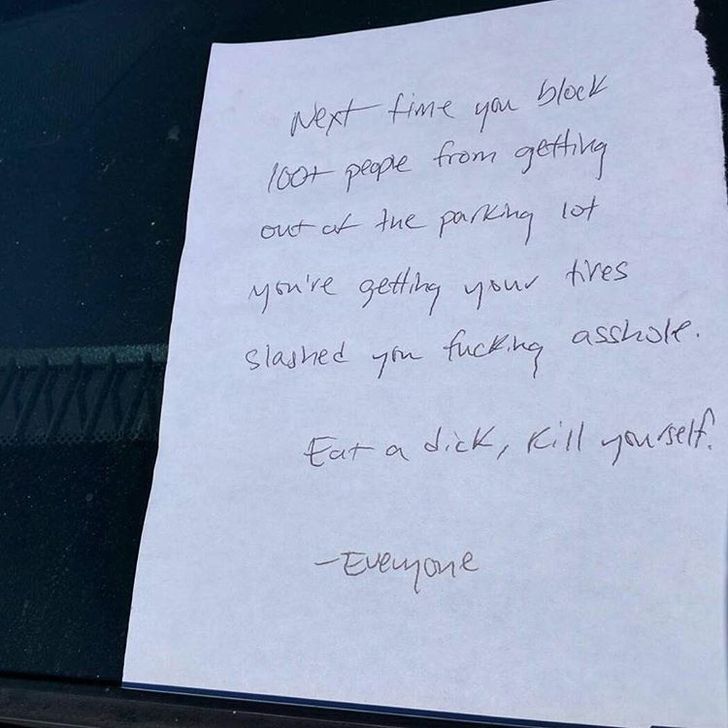 Next time you block
100+ people from getting
out of the parking lot
you're getting your tires
slashed you fucking asshole.
Eat a dick, kill yourself.
-Everyone